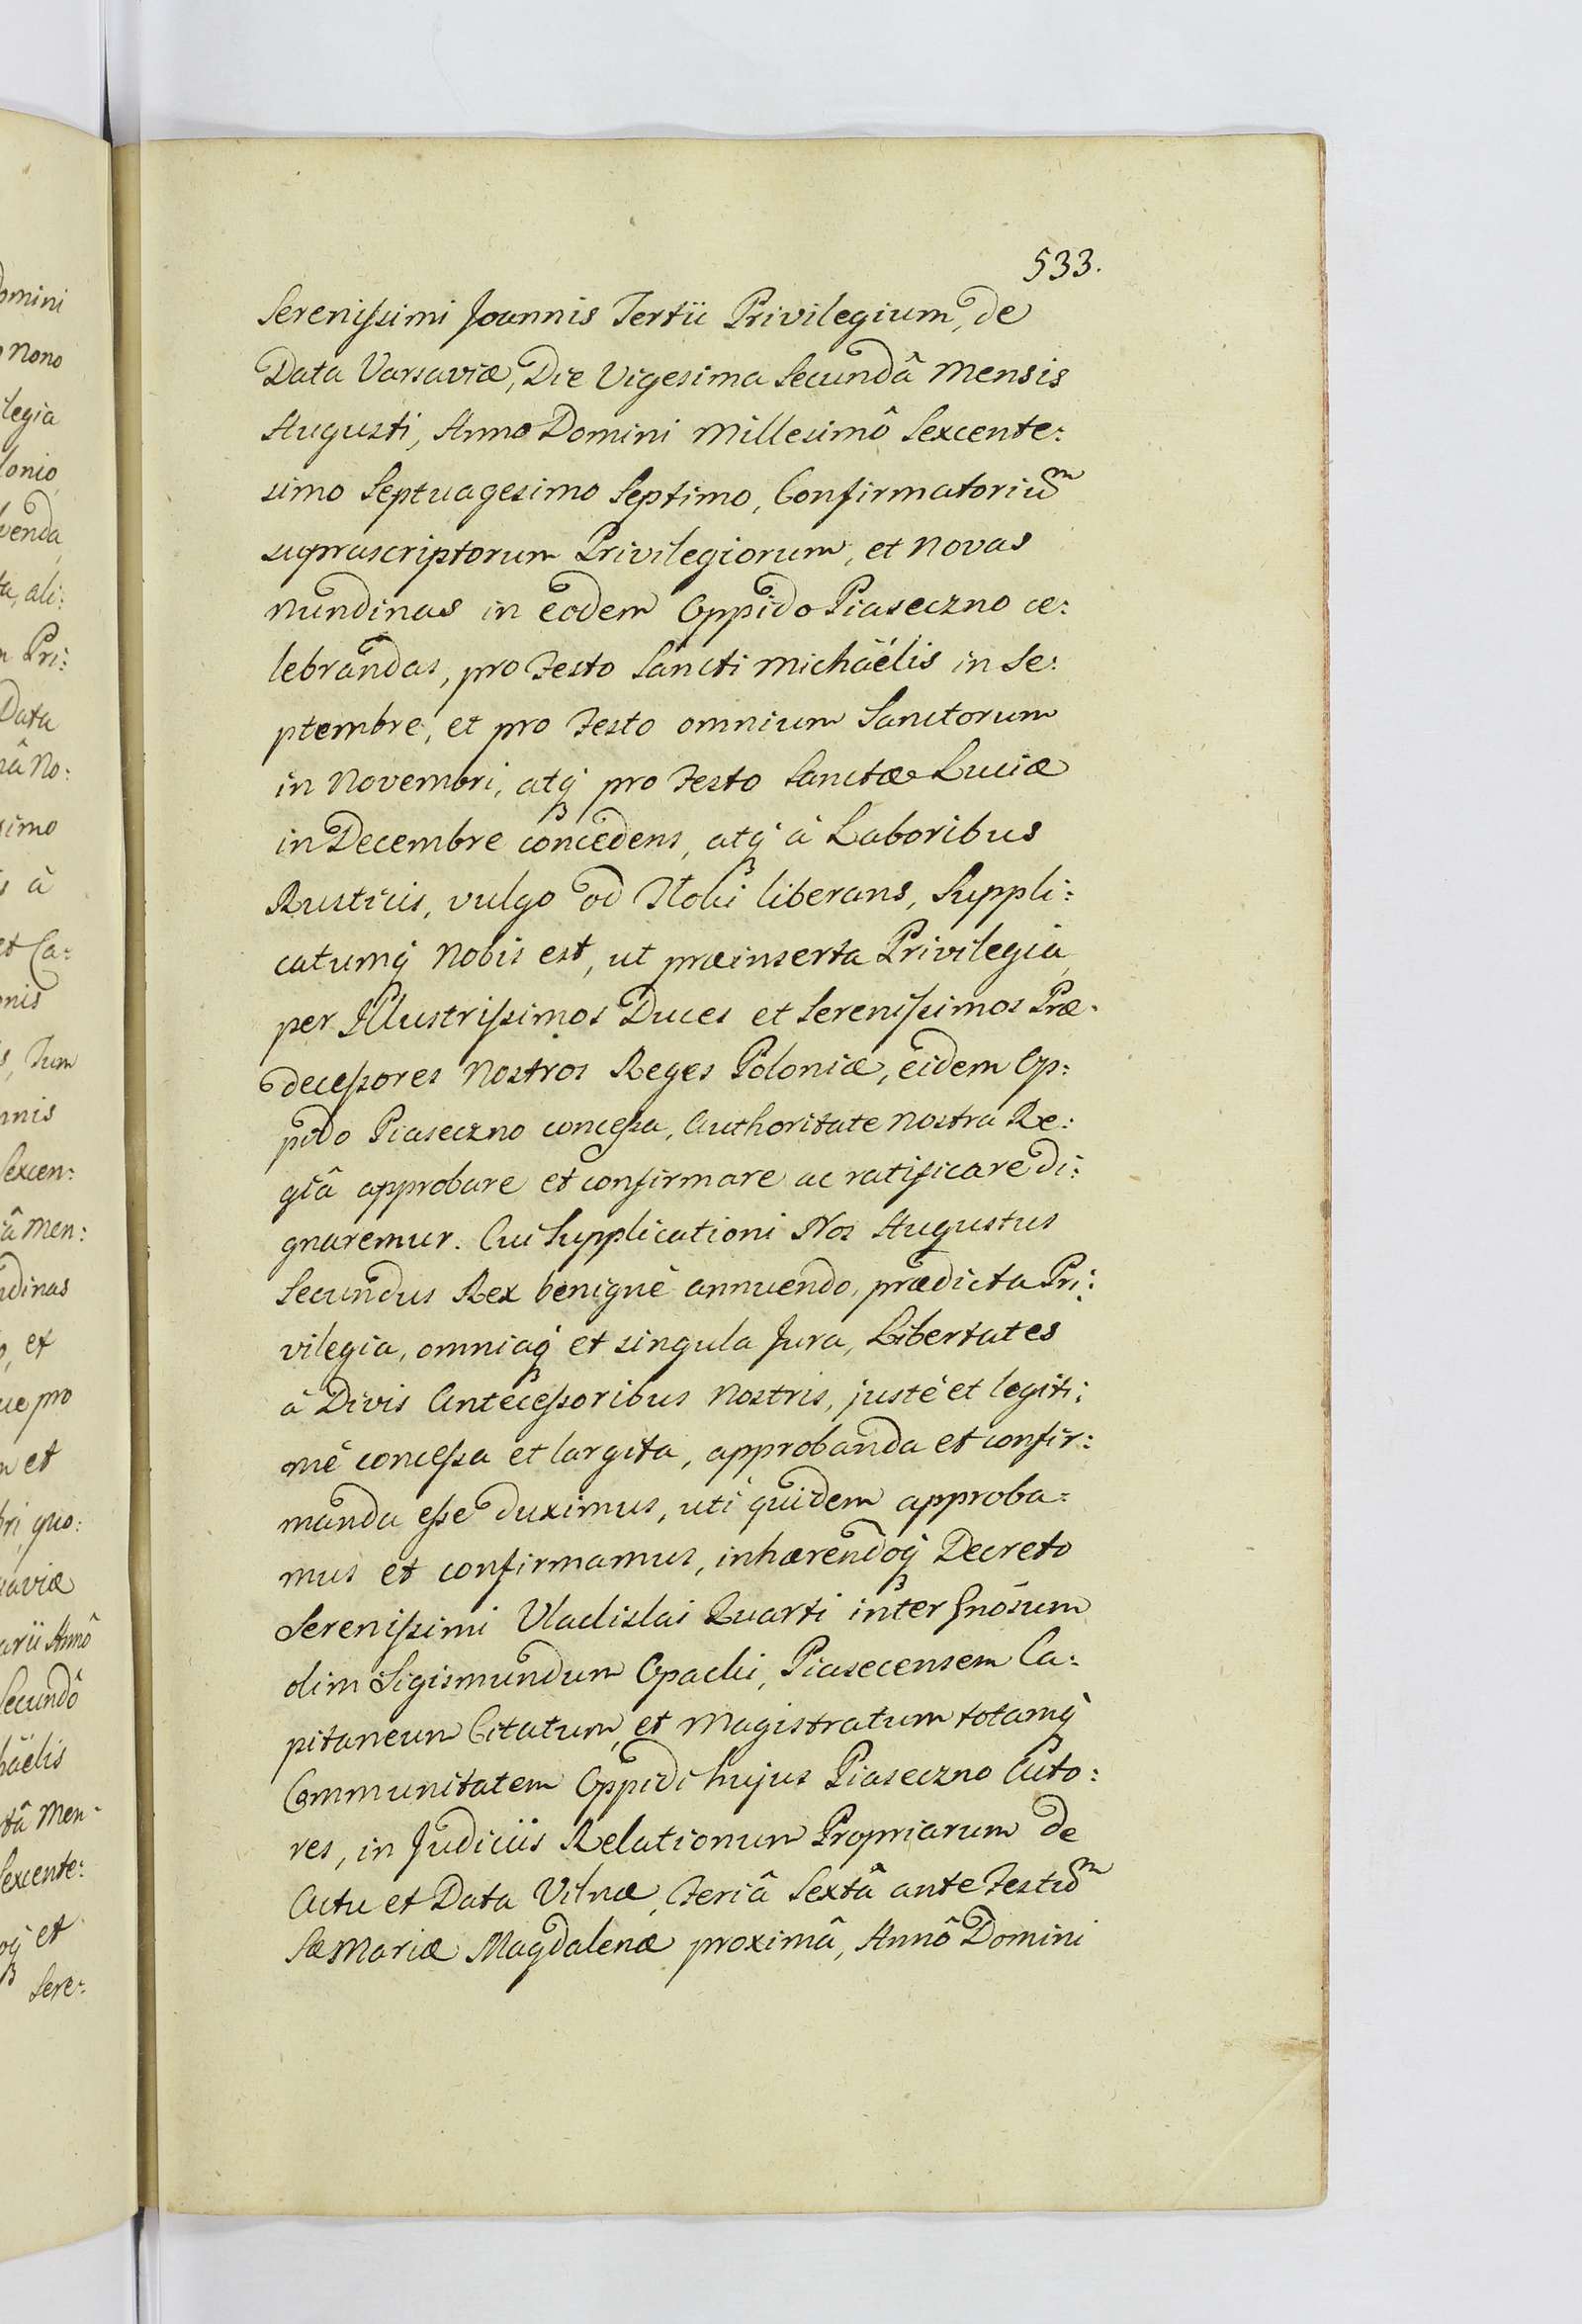 omini
nono
legia
lonio
venda
ta, ali:
m Pri:
Data
nâ No:
simo
s à
et Ca:
onis
s, Tum
nnis
Sexcen:
iâ Men:
ndinas
o, et
ue pro
n et
bri, quo:
saviæ
arii Annô
Secundô
haëlis
tâ Men:
Sexcente:
oq et
Sere:
533.
Serenissimi Joannis Tertii Privilegium, de
Data Varsaviæ, Die Vigesima Secundâ Mensis
Augusti, Anno Domini Millesimô Sexcente:
simo Septuagesimo Septimo, Confirmatoriuͫ
suprascriptorum Privilegiorum, et novas
nundinas in eodem Oppido Piaseczno ce:
lebrandas, pro Festo Sancti Michaëlis in Se:
ptembre, et pro Festo omnium Sanctorum
in Novembri, atq pro Festo Sanctæ Luciæ
in Decembre concedens, atq à Laboribus
Rusticis, vulgo od Tłoki liberans, Suppli:
catumq Nobis est, ut præinserta Privilegia,
per Illustrissimos Duces et Serenissimos Præ:
decessores Nostros Reges Poloniæ, eidem Op:
pido Piaseczno concessa, Authoritate Nostra Re:
giâ approbare et confirmare ac ratificare di:
gnaremur. Cui Supplicationi Nos Augustus
Secundus Rex benignè annuendo, prædicta Pri:
vilegia, omniaq et singula Jura, Libertates
à Divis Antecessoribus Nostris, justè et legiti:
mè concessa et largita, approbanda et confir:
manda esse duximus, uti quidem approba:
mus et confirmamus, inhærendoq Decreto
Serenissimi Vladislai Quarti inter Gnōsum
olim Sigismundum Opacki, Piasecensem Ca:
pitaneum Citatum, et Magistratum totamq
Communitatem Oppidi hujus Piaseczno Acto:
res, in Judiciis Relationum Propriarum de
Actu et Data Vilnæ, Feriâ Sextâ ante Festuͫ
Sæ Mariæ Magdalenæ proximâ, Annô Domini